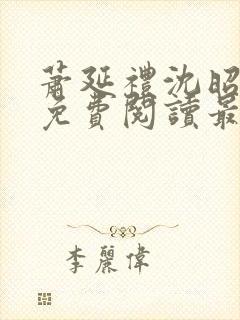 蕭延禮沈昭
免費閱讀最
李麗偉